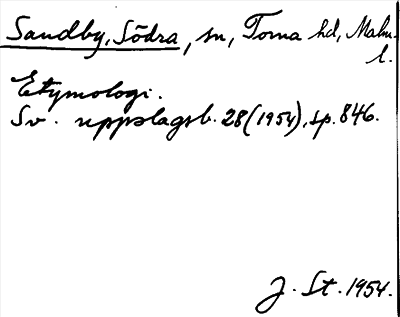 Sandby, Södra, sn, Torna hd, Malm.
l.
Etymologi.
Sv. uppslagsb. 28 (1954), sp. 846.
J. St. 1954.